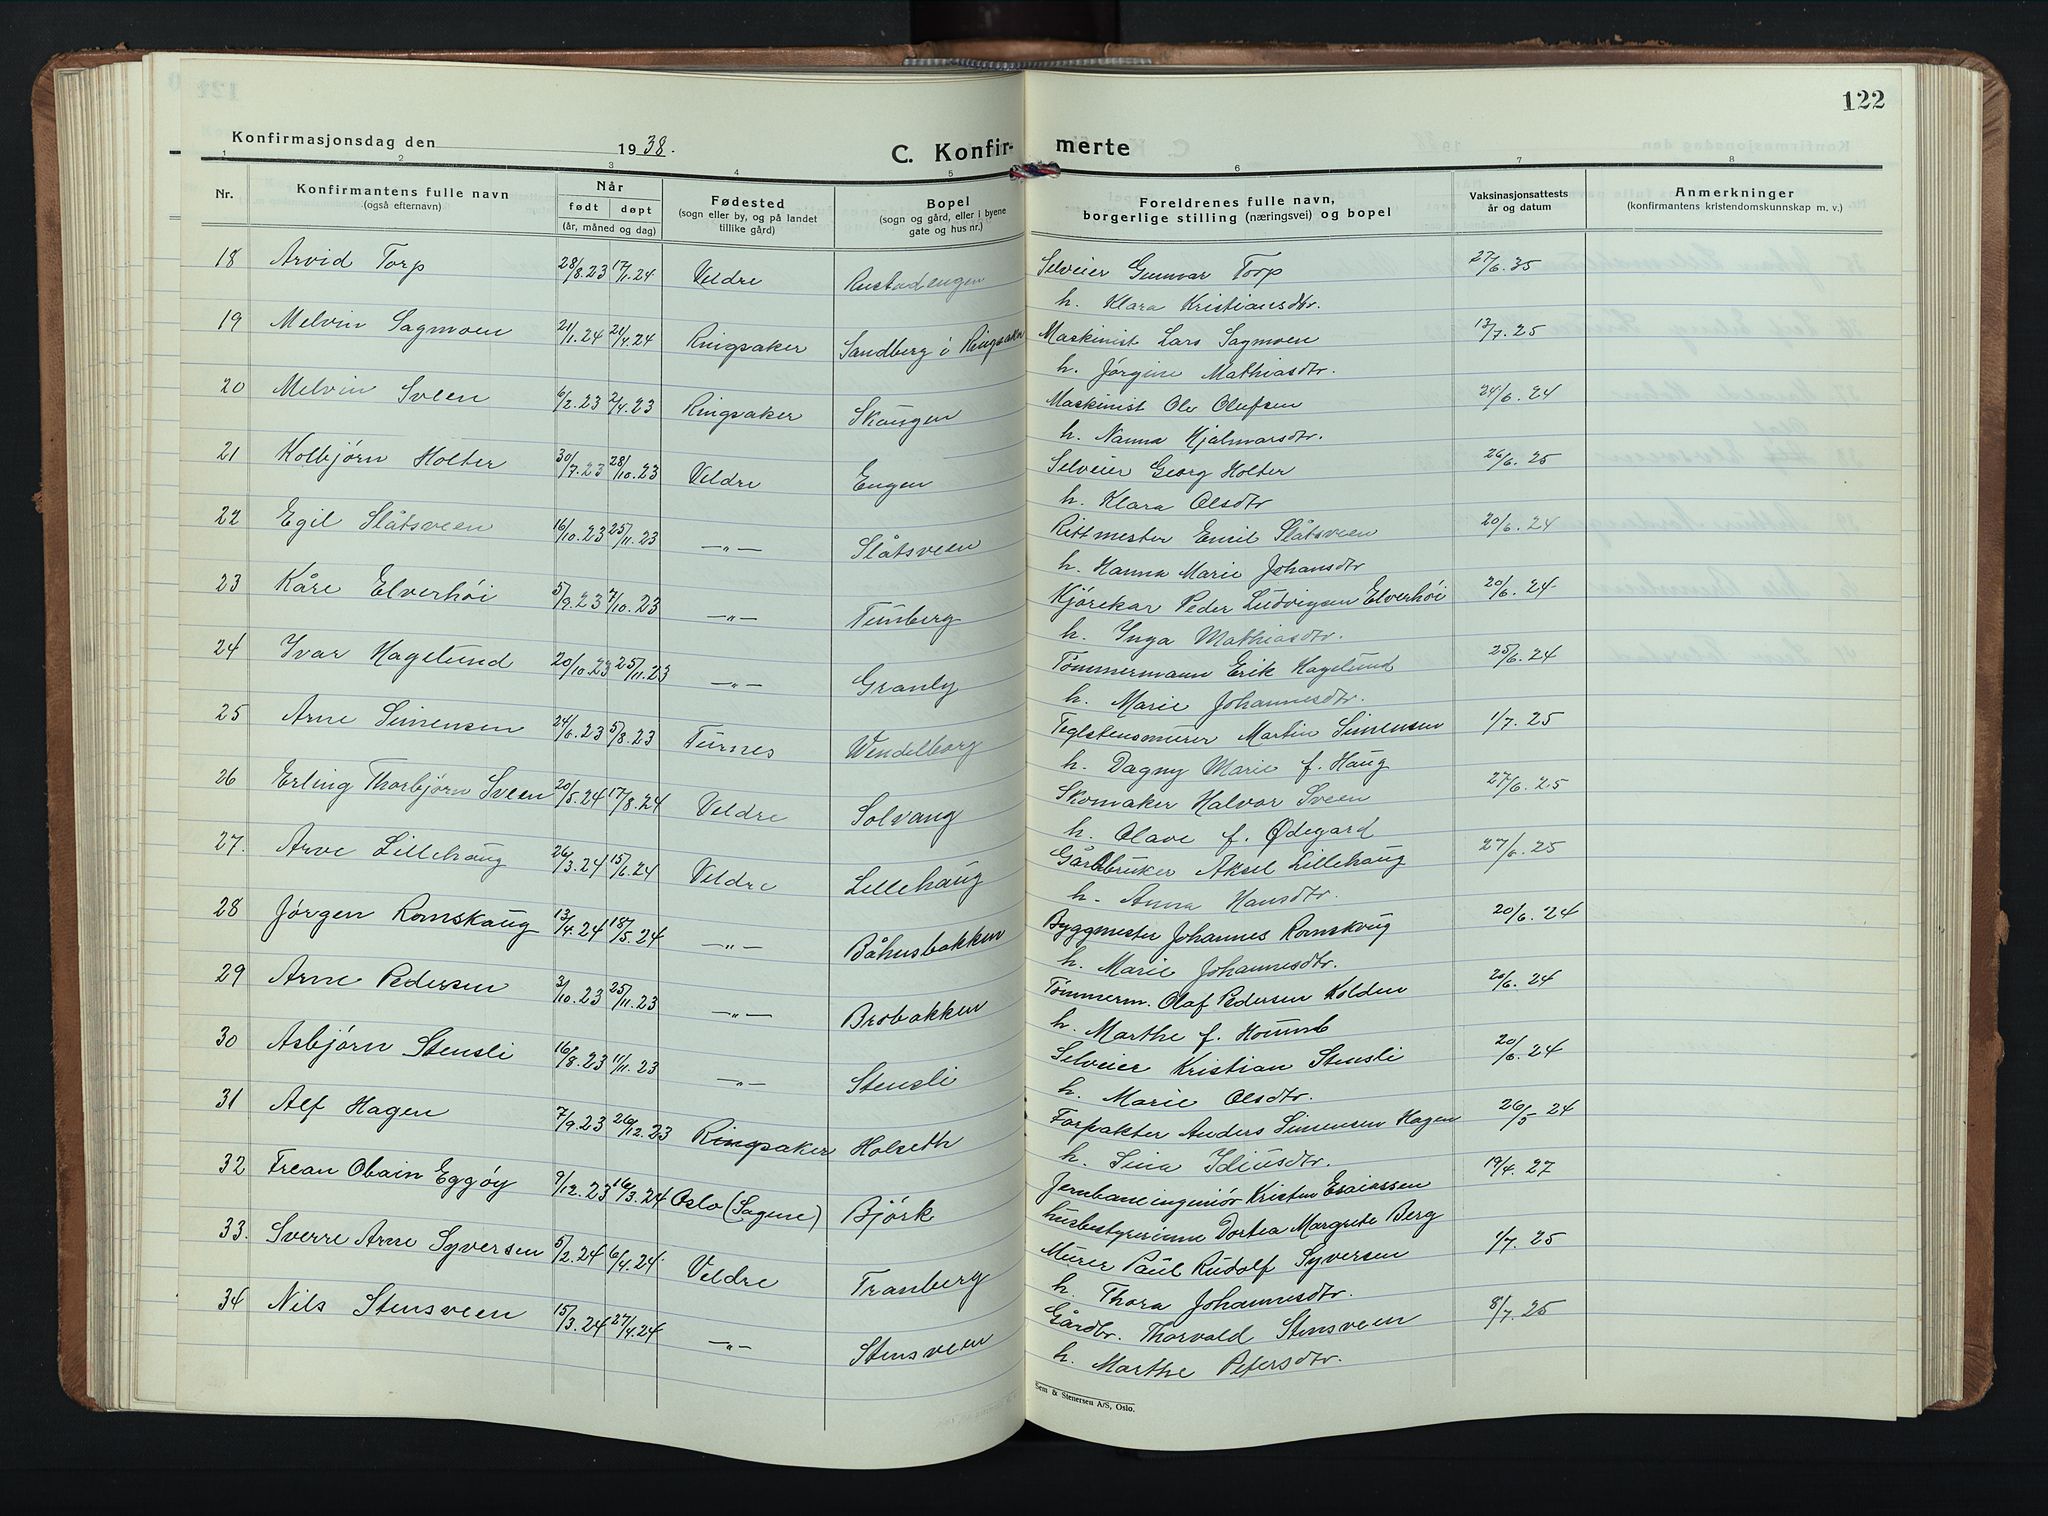 122
Konfirmasjonsdag den 1938.
C. Konfir- merte
1 2 3 4 5 6 7 8
Nr.
Konfirmantens fulle navn
(også efternavn)
Når
født døpt
(år, måned og dag)
Fødested
(sogn eller by, og på landet
tillike gård)
Bopel
(sogn og gård, eller i byene
gate og hus nr.)
Foreldrenes fulle navn,
borgerlige stilling (næringsvei) og bopel
Vaksinasjonsattests
år og datum
Anmerkninger
(konfirmantens kristendomskunnskap m. v.)
18 Arvid Torp 28/8.23 17/1.24 Veldre Rustadengen Selveier Gunnar Torp 27/6.35
h. Klara Kristiansdtr.
19 Melvin Sagmoen 21/1.24 21/4.24 Ringsaker Sandberg i Ringsaker Maskinist Lars Sagmoen 13/7.25
h. Jørgine Mathiasdtr.
20 Melvin Sveen 6/2.23 2/4.23 Ringsaker Skaugen Maskinist Ole Olufsen 24/6.24
h. Nanna Hjalmarsdtr.
21 Kolbjørn Holter 30/7.23 28/10.23 Veldre Engen Selveier Georg Holter 26/6.25
h. Klara Olsdtr
22 Egil Slåtsveen 16/10.23 25/11.23 —"— Slåtsveen Rittmester Emil Slåtsveen 20/6.24
h. Hanna Marie Johansdtr
23 Kåre Elverhøi 5/9.23 7/10.23 —"— Tunberg Kjørekar Peder Ludvigsen Elverhøi 20/6.24
h. Inga Mathiasdtr.
24 Ivar Hagelund 20/10.23 25/11.23 —"— Granly Tømmermann Erik Hagelund 25/6.24
h. Marie Johannesdtr.
25 Arne Simensen 24/6.23 5/8.23 Furnes Wendelborg Teglstensmurer Martin Simensen 1/7.25
h. Dagny Marie f. Haug
26 Erling Thorbjørn Sveen 20/5.24 17/8.24 Veldre Solvang Skomaker Halvor Sveen 27/6.25
h. Olave f. Ødegard
27. Arve Lillehaug 26/3.24 15/6.24 Veldre Lillehaug Gårdbruker Aksel Lillehaug 27/6.25
h. Anna Hansdtr.
28 Jørgen Romskaug 13/4.24 18/5.24 —"— Båhusbakken Byggmester Johannes Romskoug 20/6.24
h. Marie Johannesdtr.
29 Arne Pedersen 3/10.23 25/11.23 —"— Brobakken Tømmerm. Olaf Pedersen Kolden 20/6.24
h. Marthe f.
30 Asbjørn Stensli 16/8.23 11/11.23 —"— Stensli Selveier Kristian Stensli 20/6.24
h. Marie Olsdtr.
31 Alf Hagen 7/9.23 26/12.23 Ringsaker Holseth Forpakter Anders Simensen Hagen 26/5 24
h. Sina Idiusdtr.
32 Frean Obain Eggøy 9/12.23 16/3.24 Oslo (Sagene) Bjørk Jernbaneingeniør Kristen Esaiassen 19/4.27
husbestyrerinne Dortea Margrete Berg
33. Sverre Arne Syversen 5/2.24 6/4.24 Veldre Tranberg Murer Paul Rudolf Syversen 1/7.25
h. Thora Johannesdtr.
34 Nils Stensveen 15/3.24 27/4.24 —"— Stensveen Gårdbr. Thorvald Stensveen 8/7.25
h. Marthe Petersdtr.
Sem & Stenersen A/S, Oslo.